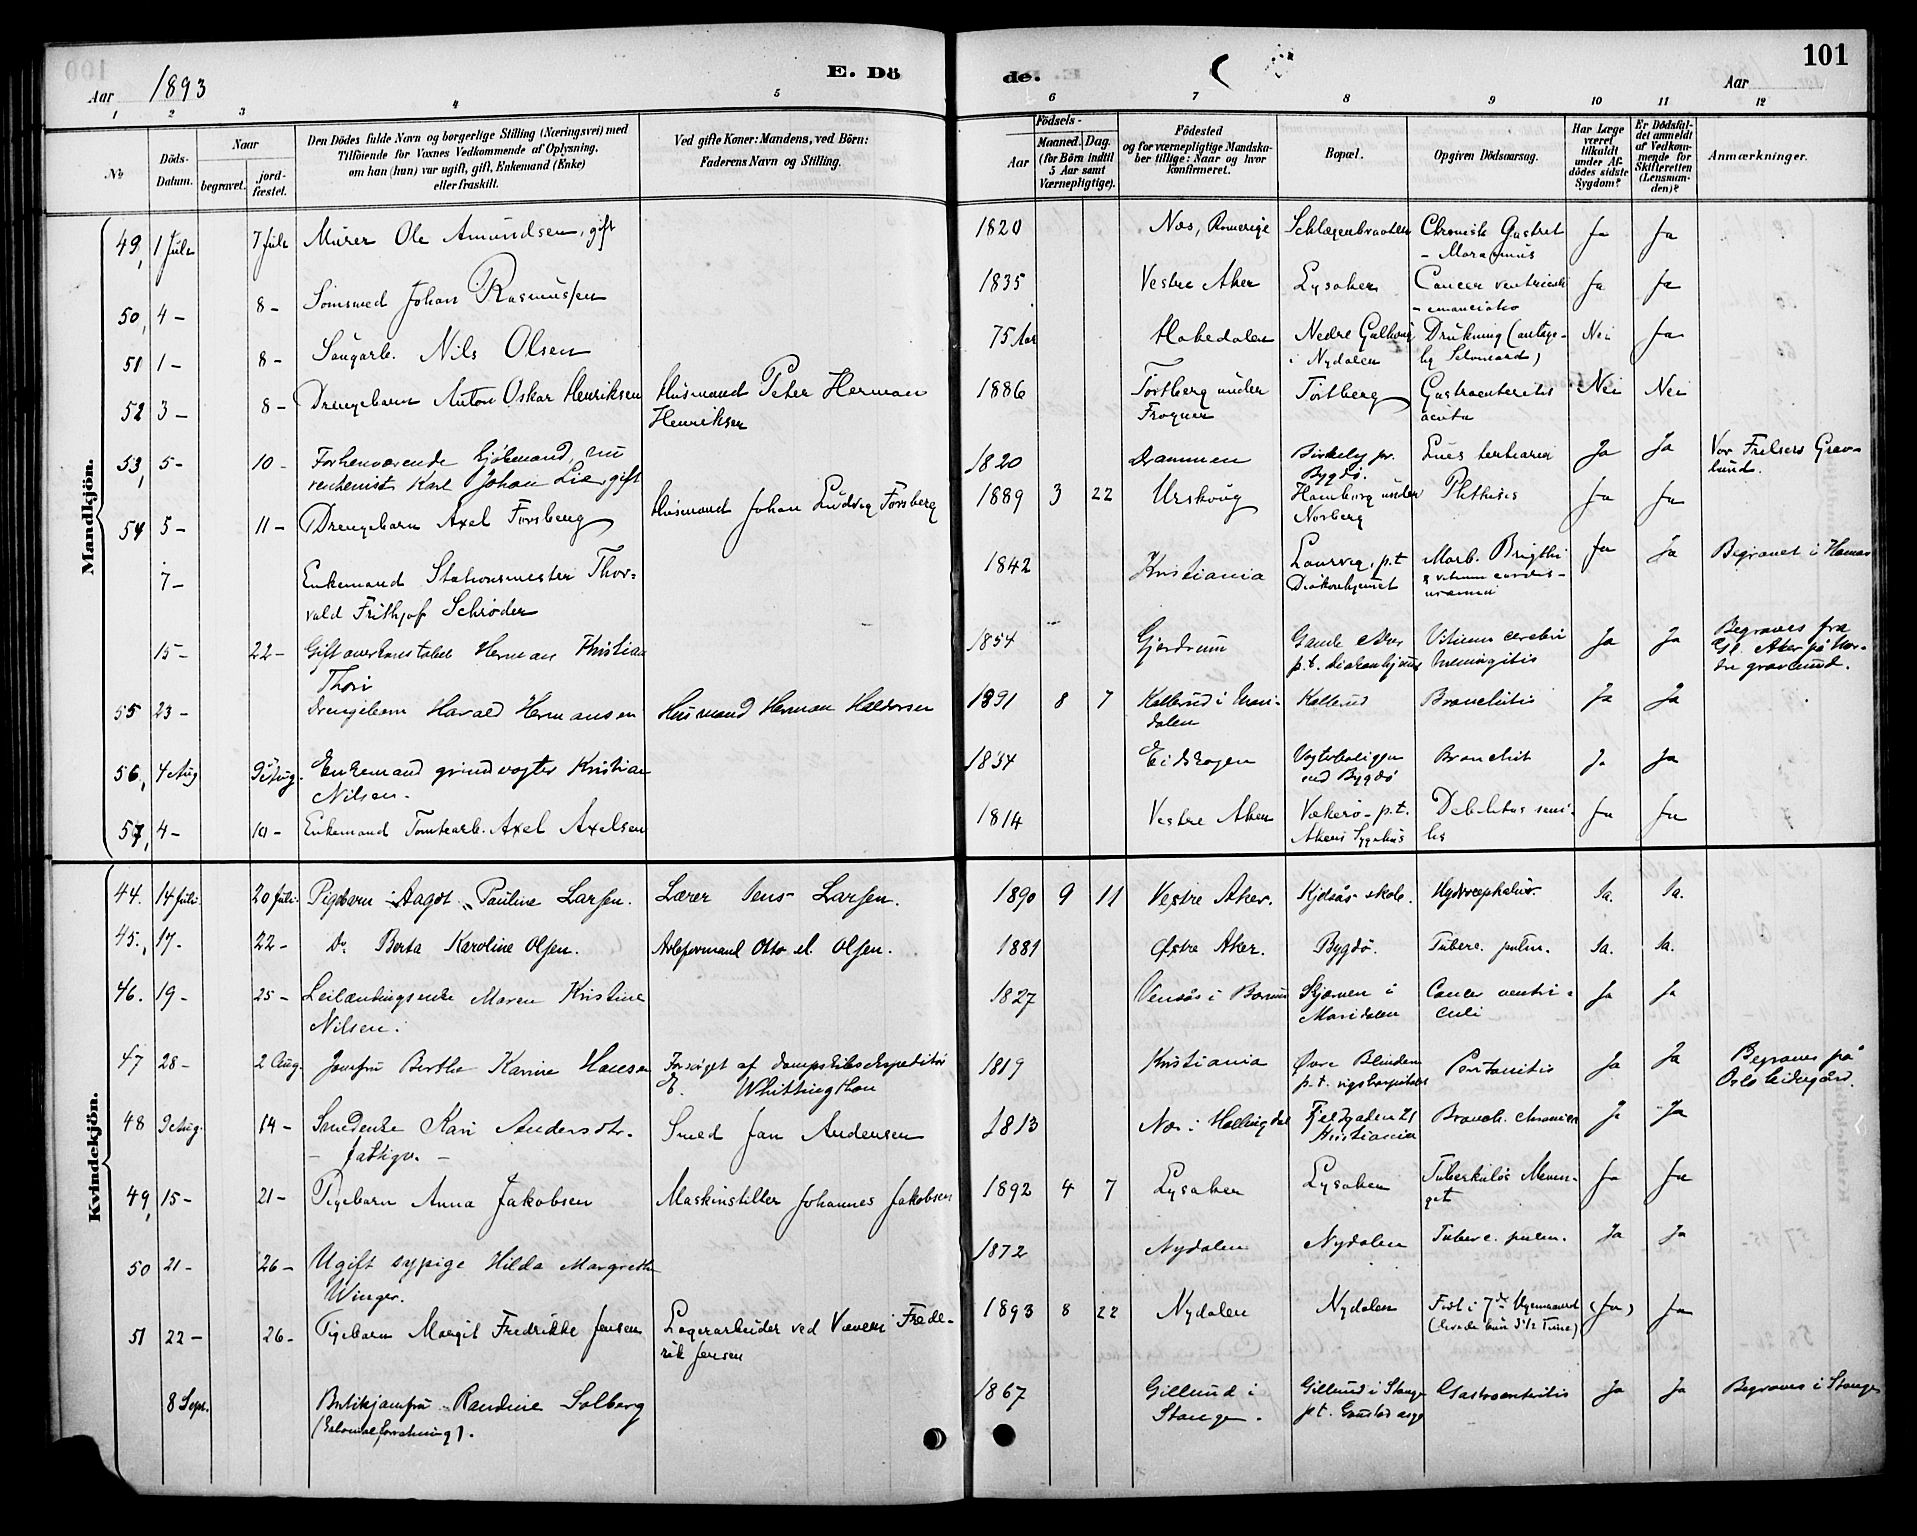 101
Aar 1893
E. Dö
de.
Aar
1 2 3 4 5 6 7 8 9 10 11 12
No
Döds-Datum.
Naar
begravet.
jord-fæstet.
Den Dödes fulde Navn og borgerlige Stilling (Næringsvei) med
Tilföiende for Voxnes Vedkommende af Oplysning,
om han (hun) var ugift, gift, Enkemand (Enke)
eller fraskilt.
Ved gifte Koner: Mandens, ved Börn:
Faderens Navn og Stilling.
Födsels-
Aar
Maaned. Dag.
(for Börn indtil
5 Aar samt
Værnepligtige).
Födested
og for værnepligtige Mandska-
ber tillige: Naar og hvor
konfirmeret.
Bopæl.
Opgiven Dödsaarsag.
Har Læge
været
tilkaldt
under Af-
dödes sidste
Sygdom?
Er Dödsfal-
det anmeldt
af Vedkom-
mende for
Skifteretten
(Lensman-
den)?
Anmærkninger.
Mandkjön.
49, 1 Juli 7 Juli Murer Ole Amundsen, gift 1820 Næs, Romerige Schlægenbraaten Chronisk Gastrit - Marasmus Ja Ja
50, 4 - 8 - Sömsmed Johan Rasmussen 1835 Vestre Aker Lysaker Cancer ventriculi - emaciatio Ja Ja
51 1 - 8 - Saugarb. Nils Olsen 75 Aar Hakedalen Nedre i Nydalen Drukning (antage-lig Selvmord) Nei Ja
52 3 - 8 - Drengebarn Anton Oskar Henriksen Husmand Peter Herman Henriksen 1886 Tortberg under Frogner Tortberg Gastroenteritis acuta Nei Nei
53, 5 - 10 - Forhenværende kjöbmand, nu Karl Johan Lie, gift 1820 Drammen Birkeley pr. Bygdö. Lues tertiaria Ja Ja Vor Frelsers Grav-lund.
54 5 - 11 - Drengebarn Axel Forsberg Husmand Johan Ludvig Forsberg 1889 3 22 Urskoug Hamborg under Norberg Phthisis Ja Ja
7 - Enkemand Stationsmester Thor-vald Frithjof Schröder 1842 Kristiania Laurvig, p.t. Diakonhjemet Morb. Brigthi & vitium cordis - uræmi Ja Ja Begravet i Hamar
15 - 22 - Gift overkonstabel Herman Kristian Thori 1854 Gjerdrum Gamle Aker p.t. diakonhjem Vitium cerebri Meningitis Ja Ja Begraves fra Gl. Aker på Nor-dre gravlund.
55 23 - Drengebarn Harald Hermansen Husmand Herman Haldorsen 1891 8 7 Kallerud i Mari-dalen Kallerud Bronchitis Ja Ja
56, 4 Aug 9 Aug. Enkemand grindvogter Kristian Nilsen. 1834 Eidskogen Vogterboligen ved Bygdö Bronchit Ja Ja
57, 4 - 10 - Enkemand Tomtearb. Axel Axelsen 1814 Vestre Aker Vækerö - p.t. Akers Sygehus Debilitas seni-lis Ja Ja
Kvindekjön.
44. 14 Juli. 20 Juli. Pigebarn Aagot Pauline Larsen. Lærer Jens Larsen. 1890 9 11 Vestre Aker. Kjelsås skole. Hydrocephalus. Ja. Ja.
45., 17 - 22 - Do Berta Karoline Olsen. Arbeformand Otto A. Olsen. 1881 Østre Aker. Bygdö. Tuberc. pulm. Ja. Ja.
46. 19 - 25 - Leilændingsenke Maren Kristine Nilsen. 1827 i Bærum Skjærven i Maridalen Cancer ventri-culi Ja Ja
47 28 - 2 Aug. Jomfru Berthe Karine Hansen Forsörget af dampskibsexpeditör E. Whittingthon 1819 Kristiania Övre Blindern p.t. rigshospitalet Peritonitis Ja Ja Begraves på Oslo kirkegård.
48 9 Aug. 14 - Smedenke Kari Andersdtr. - fattigv. - Smed Jan Andersen 1813 Næs i Hallingdal Fjeldgaden 21 Kristiania Bronch. chronica Ja Ja
49, 15 - 21 - Pigebarn Anna Jakobsen Maskinstiller Johannes Jakobsen 1892 4 7 Lysaker Lysaker Tuberkulös Menin-git Ja Ja
50 21 - 26 - Ugift sypige Hilda Margrethe Winger. 1872 Nydalen Nydalen Tuberc. pulm. Ja Ja
51 22 - 26 - Pigebarn Margit Fredrikke Jensen Lagerarbeider ved Væveri Frede-rik Jensen 1893 8 22 Nydalen Nydalen Födt i 7de (levede kun 3 1/2 Time) (Ja) Ja
8 Sept. Butikjomfru Randine Solberg 1867 Gillund i Stange. Gillund i Stange p.t. Gaustad asyl Gastroenteritis Ja Ja Begraves i Stange